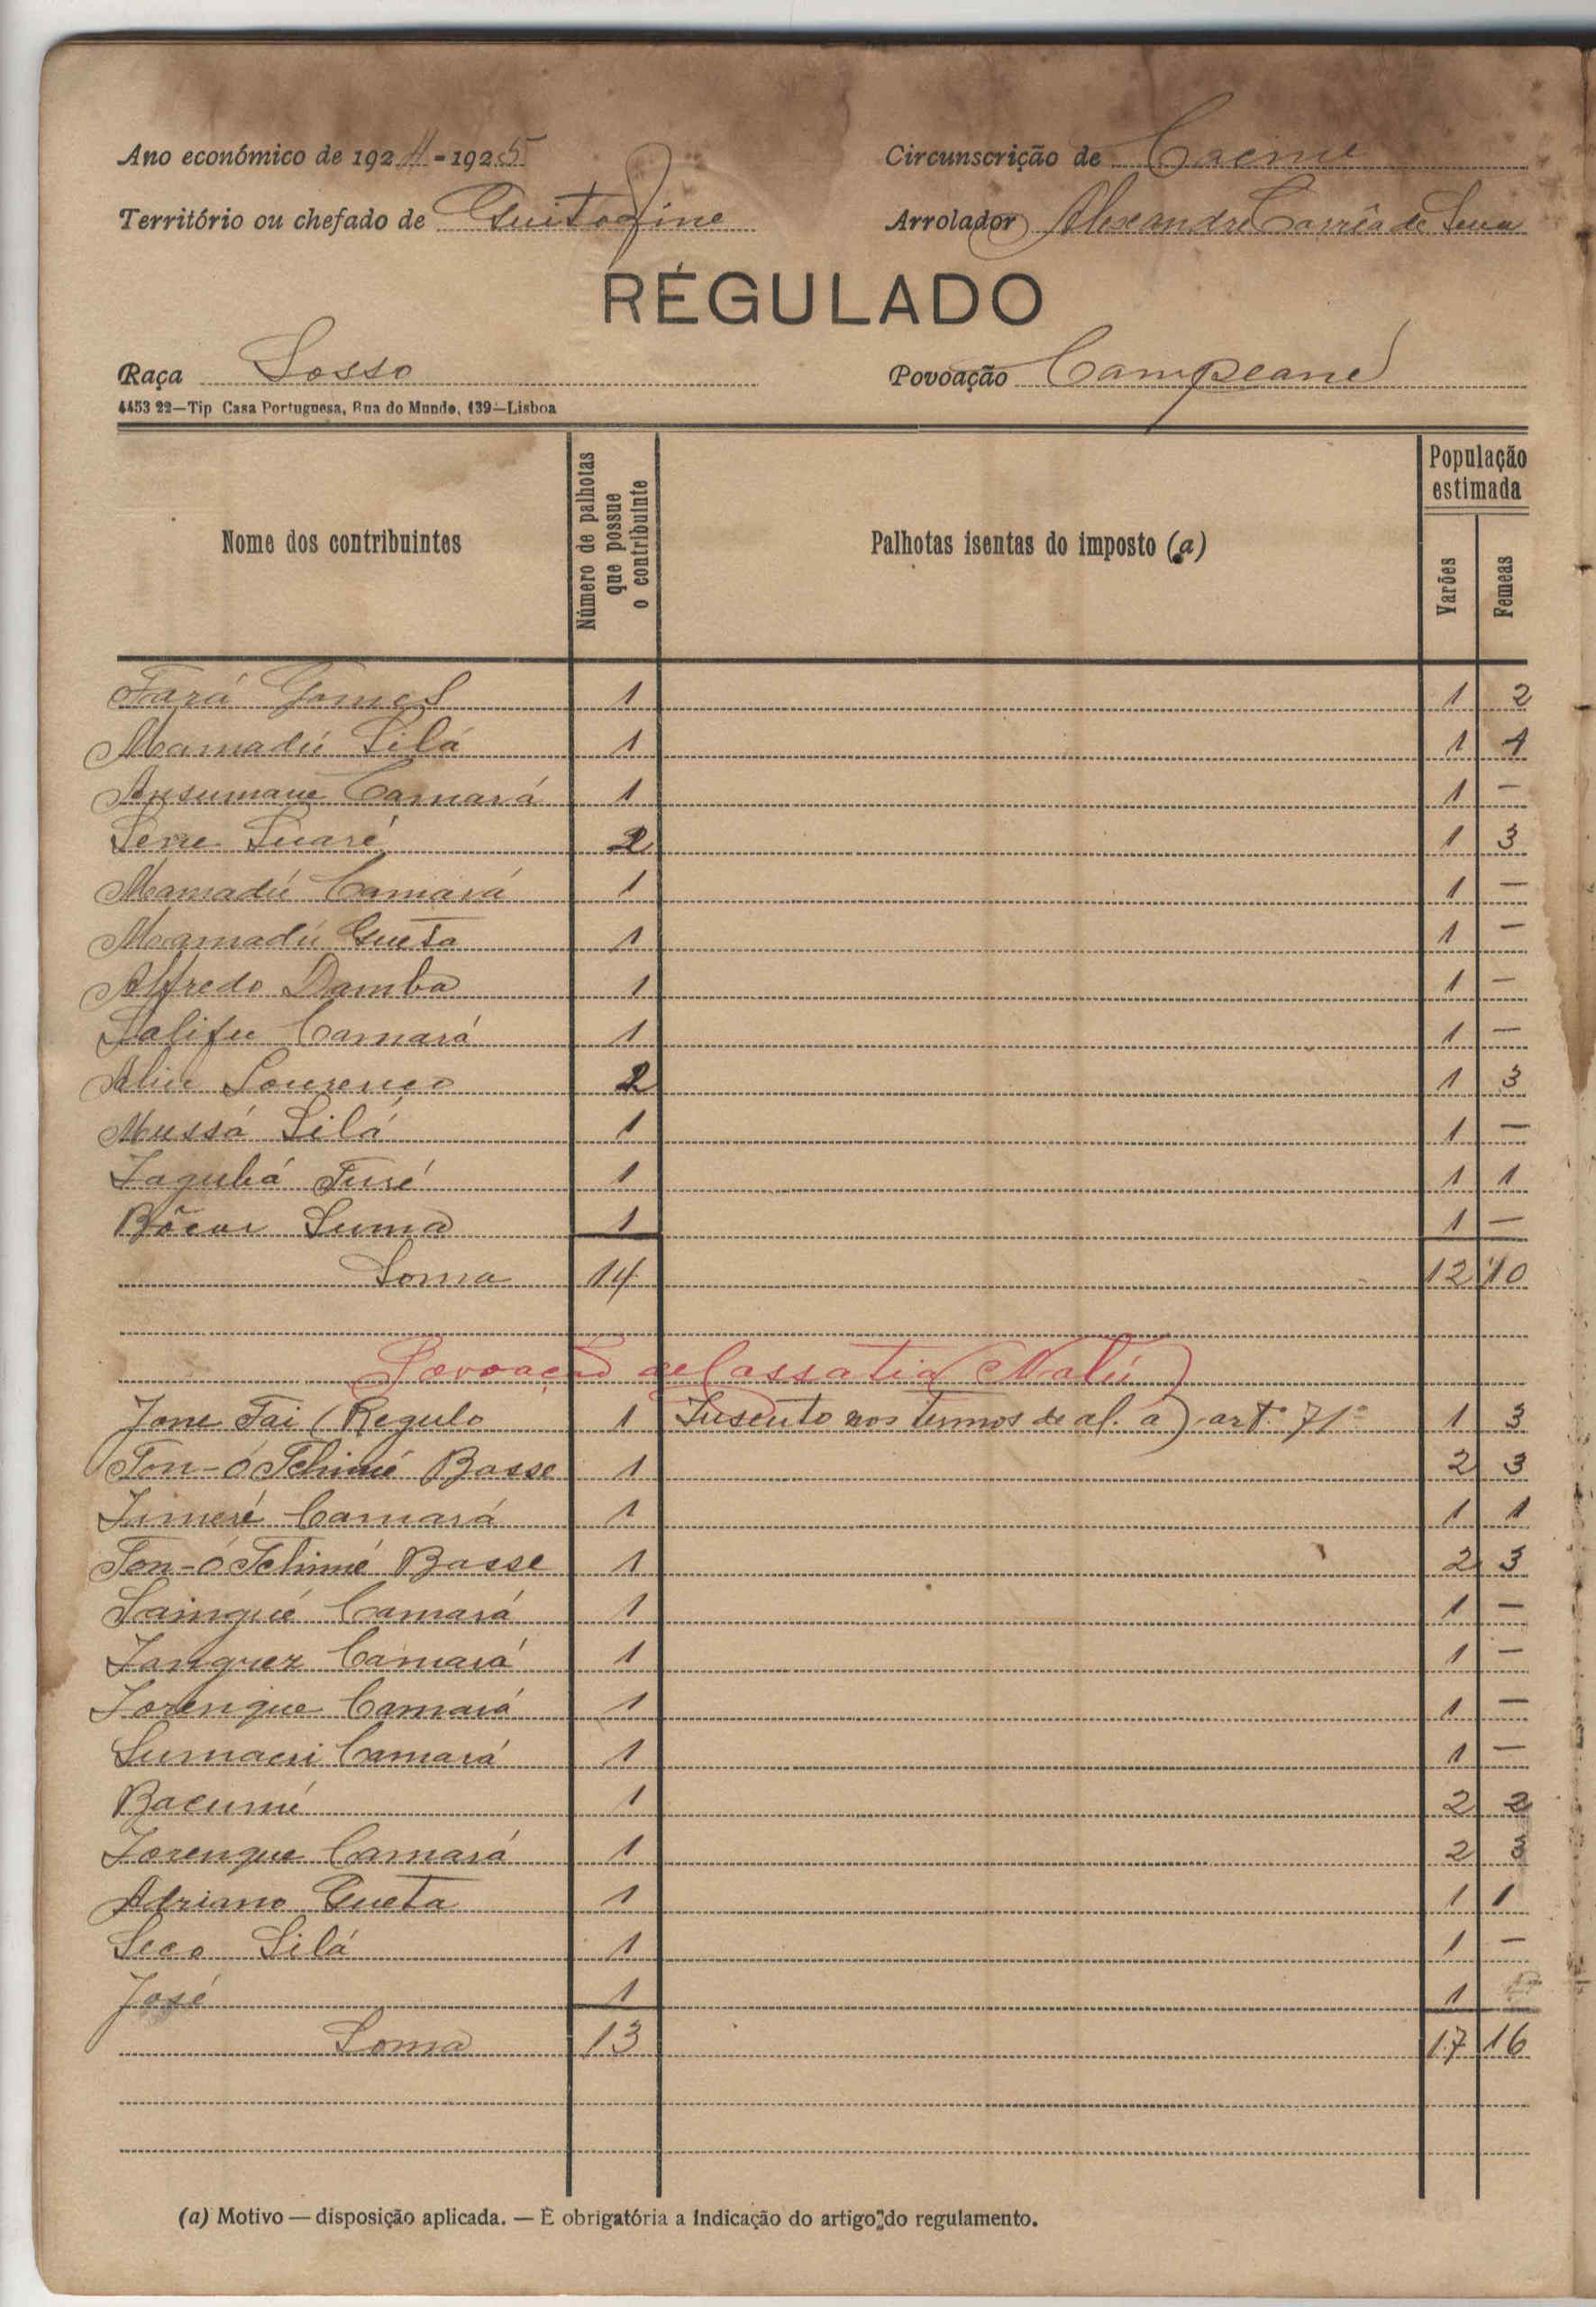 Ano económico de 1924-1925 Circunscrição de Cacine
Território ou chefado de Guitafine Arrolador Alexandre Corrêa de
RÉGULADO
Raça Sosso Povoação Campeane
4453 22—Tip Casa Portuguesa, Rua do Mundo, 139—Lisboa
Nome dos contribuintes Número de palhotas que possue o contribuinte Palhotas isentas do imposto (a) População estimada Varões Femeas
Fará Gomes 1 1 2
Mamadú Silá 1 1 1
Ansumane Camará 1 1 —
Suaré 2 1 3
Mamadú Camará 1 1 —
Mamadú Gueta 1 1 —
Alfredo Damba 1 1 —
Salifu Camará 1 1 —
Lourenço 2 1 3
Mussá Silá 1 1 —
Iagubá Turé 1 1 1
Bôcar Suma 1 1 —
Soma 14 12 10
Povoação de Cassatia (Nalú)
Jone Tai (Regulo 1 Insento nos termos de al. a) artº 71º 1 3
Ton-ó Tchimé Basse 1 2 3
Camará 1 1 1
Ton-ó Tchimé Basse 1 2 3
Camará 1 1 —
Camará 1 1 —
Iorengue Camará 1 1 —
Camará 1 1 —
Bacumé 1 2 2
Iorengue Camará 1 2 3
Adriano Gueta 1 1 1
Seco Silá 1 1 —
José 1 1
Soma 13 17 16
(a) Motivo — disposição aplicada. — É obrigatória a indicação do artigo do regulamento.